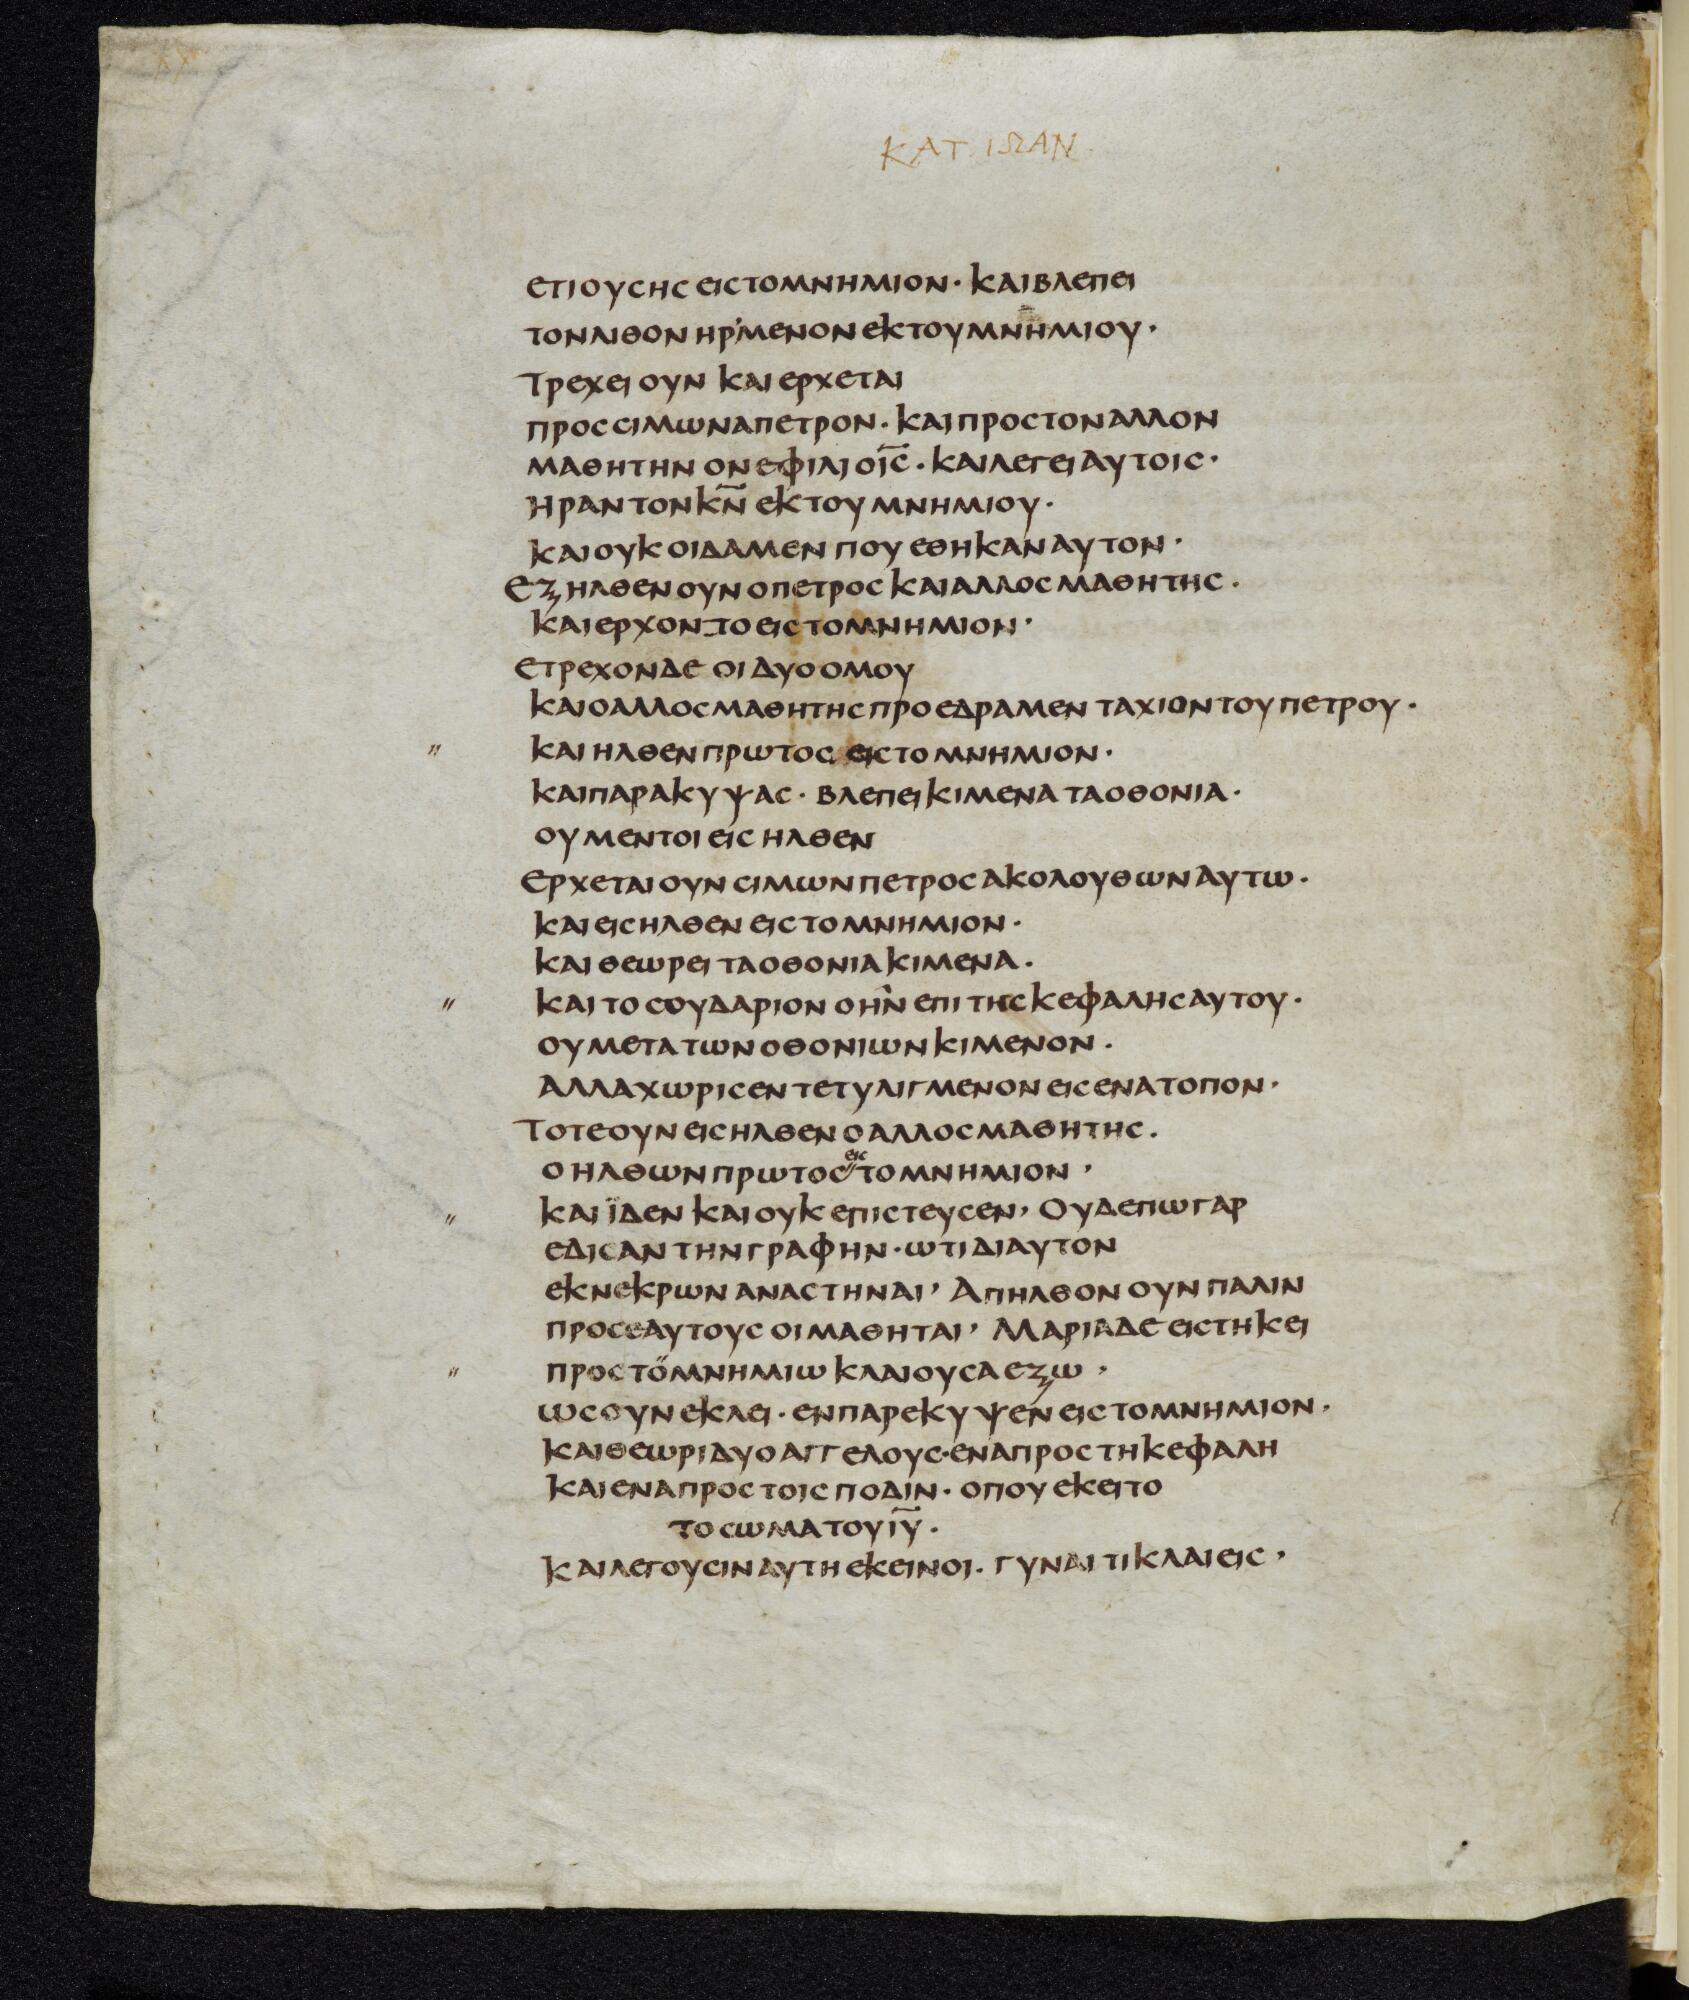 ΚΑΤ ΙΩΑΝ
ετιουσης ειςτομνημιον· καιβλεπει
τονλιθον ηρ'μενον εκτουμνημιου·
Τρεχει ουν και ερχεται
προςσιμωναπετρον· καιπροςτοναλλον
μαθητην ονεφιλι οῑς̄· και λεγει αυτοις·
Ηραν τον κ̄ν̄ εκτου μνημιου·
και ουκ οιδαμεν που εθηκαν αυτον·
Εξηλθεν ουν οπετρος και αλλος μαθητης·
και ερχοντο ειςτομνημιον·
Ετρεχον δε οι δυο ομου
και οαλλοςμαθητης προεδραμεν ταχιον του πετρου·
" και ηλθεν πρωτος ειςτο μνημιον·
και παρακυψας· βλεπει κιμενα τα οθονια·
ου μεντοι εις ηλθεν
Ερχεται ουν σιμων πετρος ακολουθων αυτω·
και εις ηλθεν εις το μνημιον·
και θεωρει τα οθονια κιμενα·
" και το σουδαριον ο ην επι της κεφαλης αυτου·
ου μετα των οθονιων κιμενον·
αλλα χωρις εν τετυλιγμενον εις ενα τοπον·
Τοτε ουν εις ηλθεν ο αλλος μαθητης·
ο ηλθων πρωτος εις το μνημιον,
" και ϊδεν και ουκ επιστευσεν, Ουδεπω γαρ
εδισαν την γραφην· ωτι δι αυτον
εκ νεκρων αναστηναι, Απηλθον ουν παλιν
προς εαυτους οι μαθηται, Μαρια δε ειστηκει
" προς το μνημιω κλαιουσα εξω,
ως ουν εκλει· εν παρεκυψεν εις το μνημιον,
και θεωρι δυο αγγελους· ενα προς τη κεφαλη
και ενα προς τοις ποδιν· οπου εκειτο
το σωμα του ῑῡ·
Και λεγουσιν αυτη εκεινοι· γυναι τι κλαιεις,